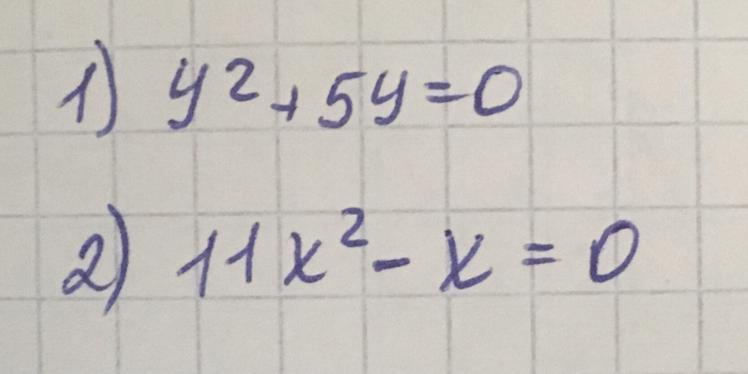 1) y² + 5y = 0
2) 11x² - x = 0